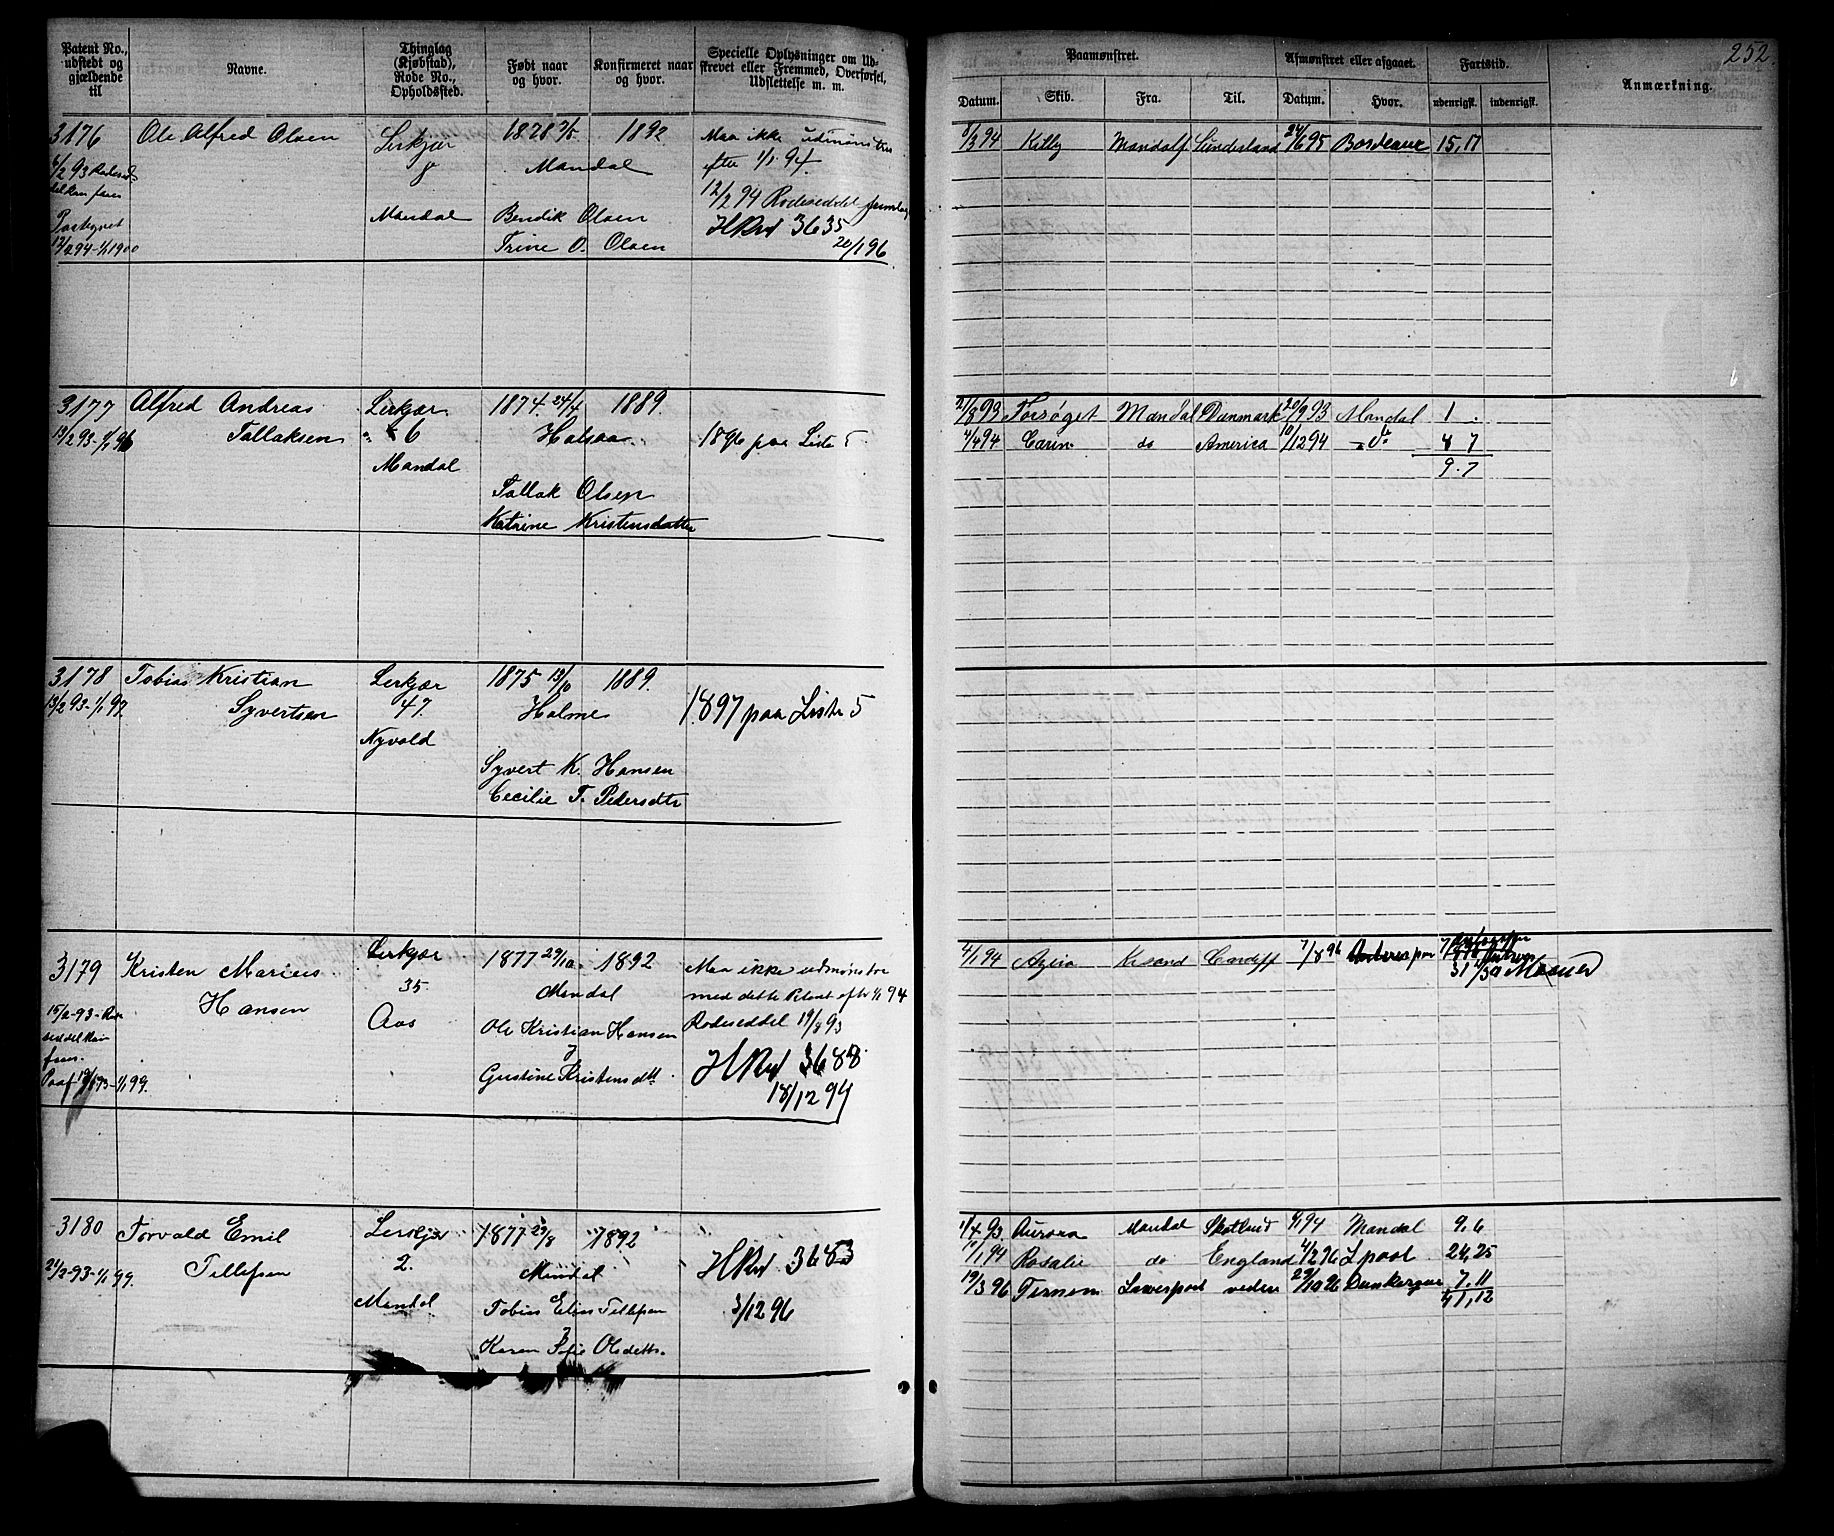 252
Patent No., udstedt og gjældende til
Navne.
Thinglag (Kjøbstad), Rode No., Opholdssted.
Født naar og hvor.
Konfirmeret naar og hvor.
Specielle Oplysninger om Udskrevet eller Fremmed, Overførsel, Udslettelse m. m.
Paamønstret.
Datum. Skib. Fra. Til.
Afmønstret eller afgaaet.
Datum. Hvor.
Fartstid.
udenrigsk. indenrigsk.
Anmærkning.
3176 Ole Alfred Olsen Lerkjær 1892 Maa ikke udmønstres
8 Mandal efter 1/1 94.
12/2 94 Rodeseddel
Mandal Bendik Olsen HRul 3635
Trine O. Olsen 20/1 96
8/2 94 Kitty Mandal Sunderland 24/6 95 Bordeaux 15,17
3177 Alfred Andreas Lerkjær 1874 24/7 1889.
13/2 93-1/1 96 Tallaksen 6 Halsaa 1896 paa Liste 5
Mandal
Tallak Olsen
Katrine Kristensdatter
21/8 93 Forsøget Mandal Danmark 20/9 93 Mandal 1
4/4 94 Carin do America 10/12 94 do 8 7
9.7
3178 Tobias Kristian Lerkjær 1875 13/10 1889.
13/2 93-1/1 97. Syvertsen 47. Holme 1897 paa Liste 5
Nyvold
Syvert K. Hansen
Cecilie T. Pedersdtr
3179 Kristen Marius Lerkjær 1877 29/10 1892 Maa ikke udmønstre
Hansen 35 Mandal med dette Patent efter 1/1 94
15/2-93- Aas Ole Kristian Hansen Rodeseddel 19/8 93
Gustine Kristensdtt. HRul 3688
18/12 94
4/1 94 Ksand Cardiff 7/8 96
3180 Torvald Emil Lerkjær 1877 23/8 1892
21/2-93-1/1 99. Tellefsen 2. Mandal HRul 3683
Mandal Tobias Elias Tellefsen 3/12 96
Karen Sofie Olsdettr.
1/4 93 Aurora Mandal Skotland 9/1 94 Mandal 9,6
11/1 94 Rosalie do England 4/2 96 Lpool 24,25
19/3 96 Ternen Liverpool videre 29/10 96 Dunkerque 7,11
41,12